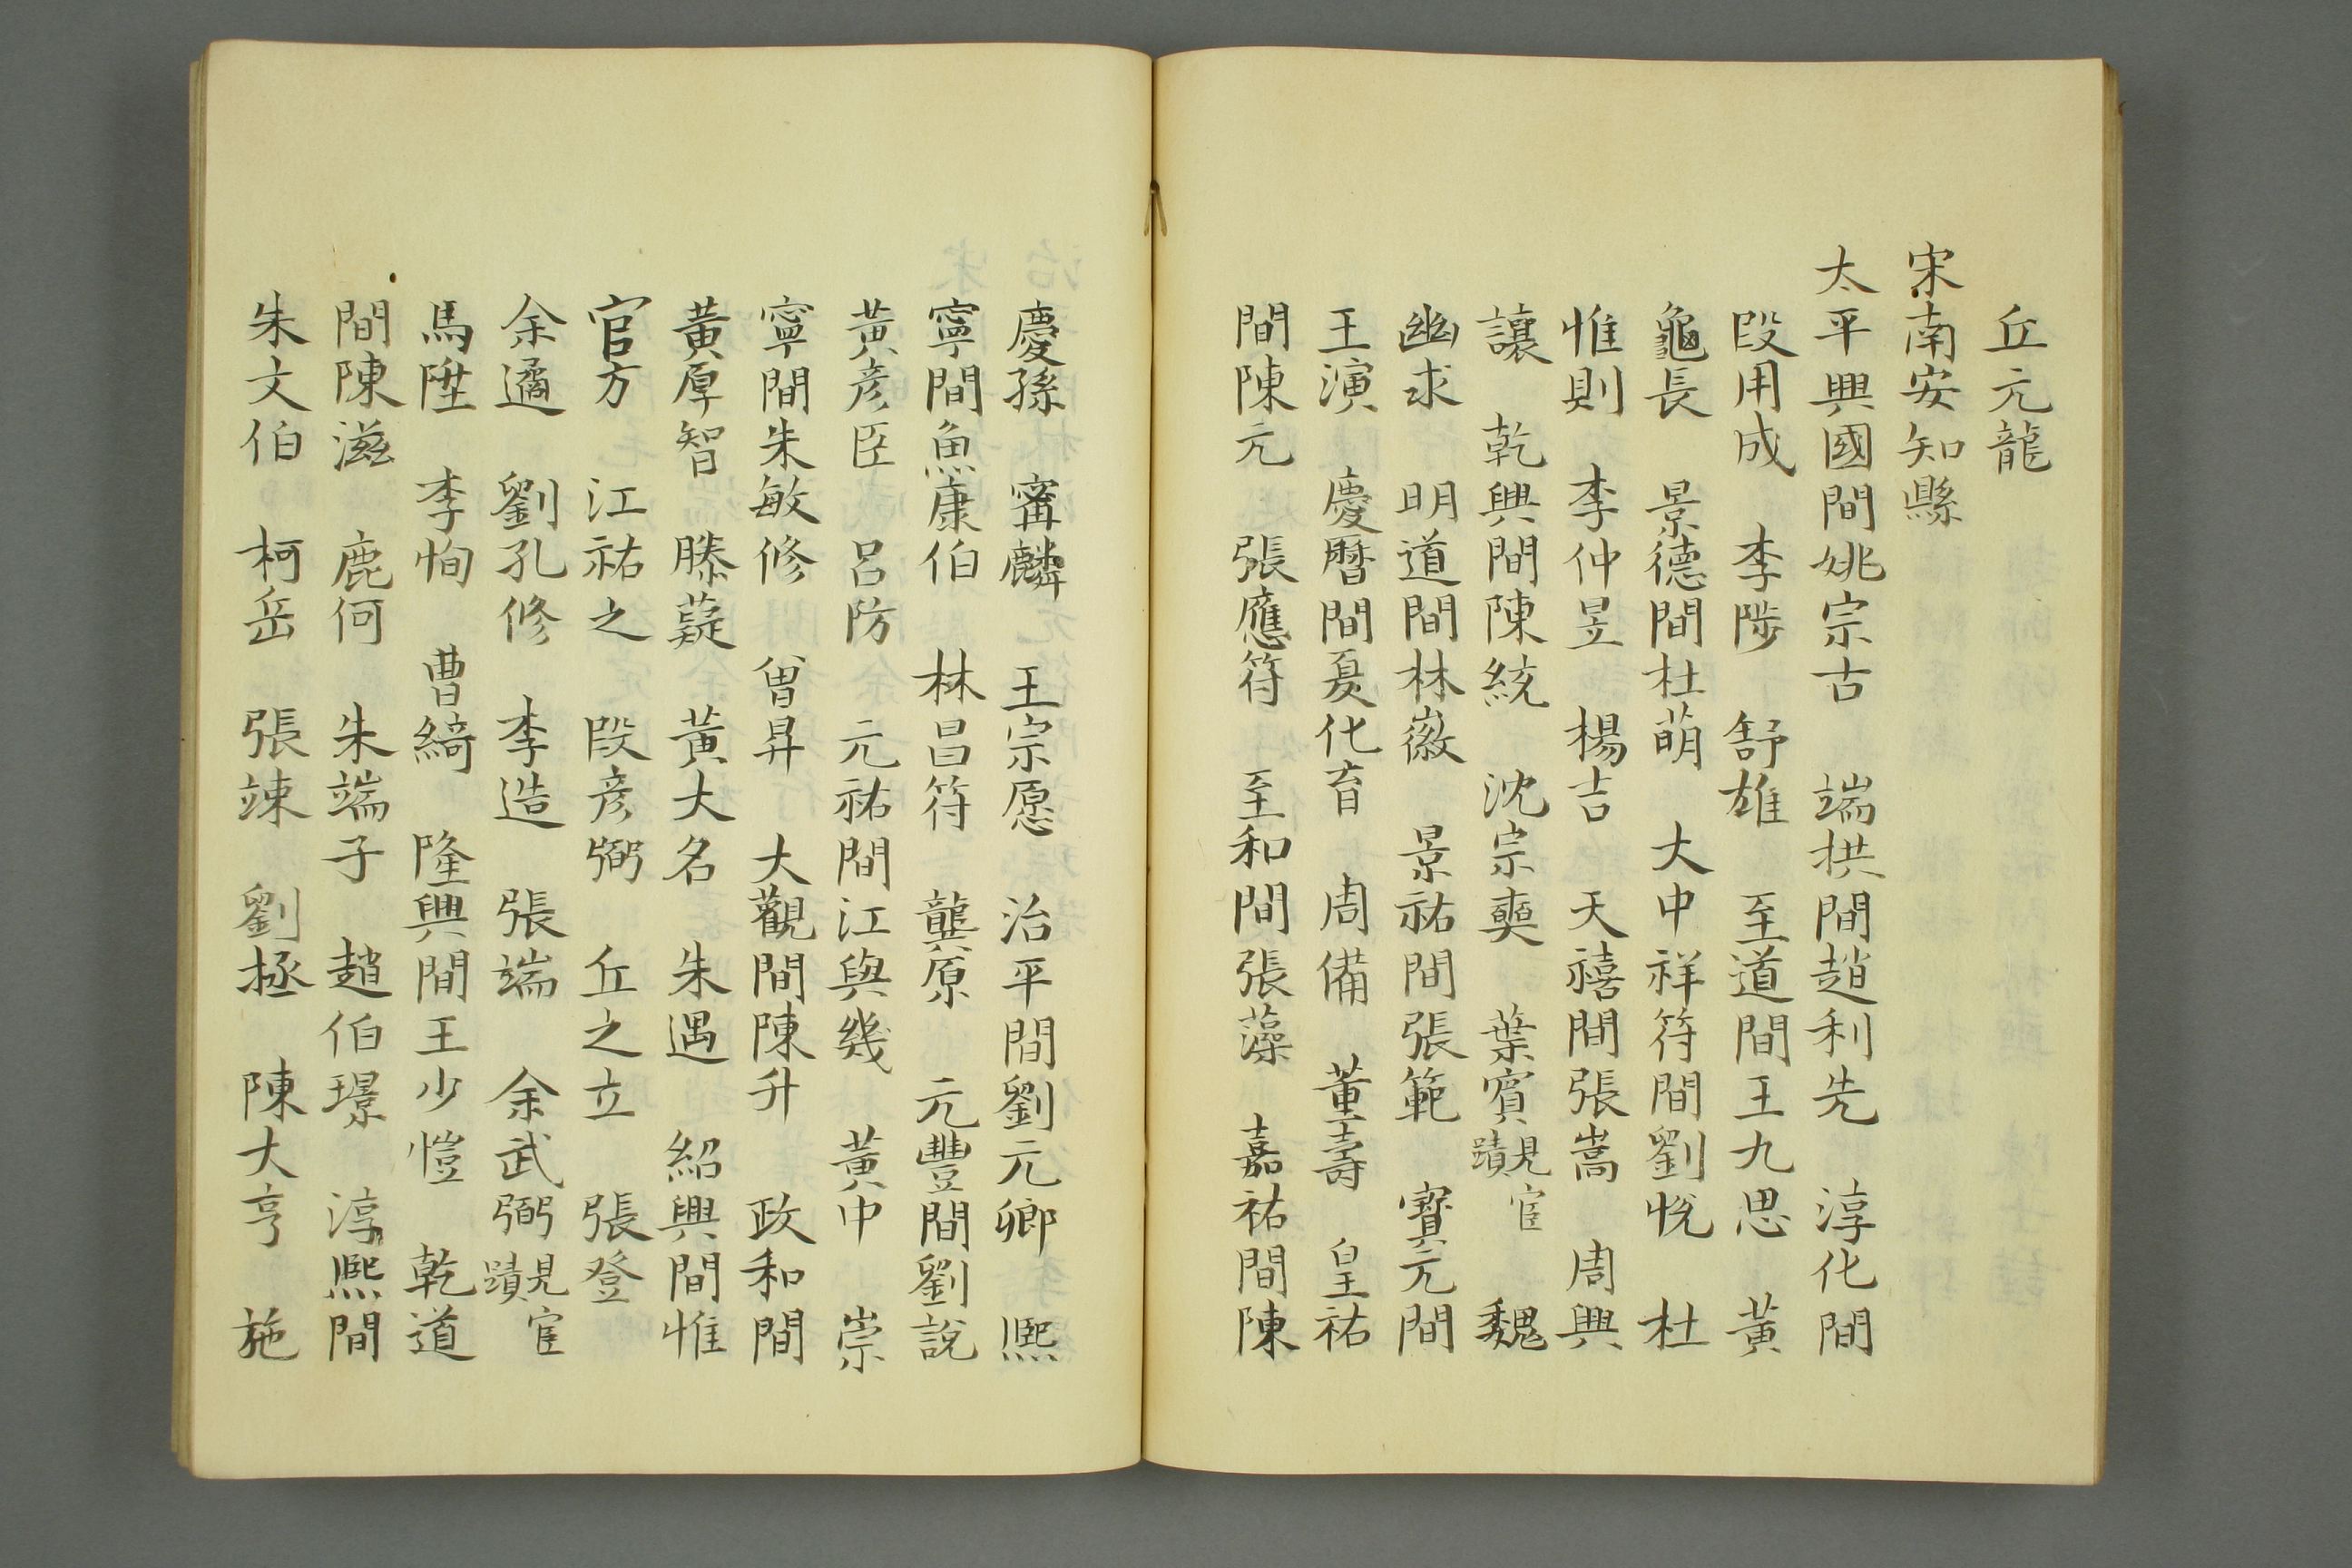 丘元龍
宋南安知縣
太平興國間姚宗古 端拱間趙利先 淳化間
段用成 李陟 舒雄 至道間王九思 黃
龜長 景德間杜萌 大中祥符間劉悅 杜
惟則 李仲昱 楊吉 天禧間張嵩 周興
讓 乾興間陳統 沈宗奭 葉賓見宦蹟 魏
幽求 明道間林徽 景祐間張範 寶元間
王演 慶曆間夏化育 周備 董壽 皇祐
間陳元 張應符 至和間張藻 嘉祐間陳
慶孫 甯麟 王宗愿 治平間劉元卿 熙
寧間魚康伯 林昌符 龔原 元豐間劉說
黃彥臣 呂防 元祐間江與幾 黃中 崇
寧間朱敏修 曾昇 大觀間陳升 政和間
黃厚智 滕蕤 黃大名 朱遇 紹興間惟
官方 江祐之 段彥弼 丘之立 張登
余遹 劉孔修 李造 張端 余武弼見宦蹟
馬陞 李恂 曹綺 隆興間王少愷 乾道
間陳滋 鹿何 朱端子 趙伯璟 淳熙間
朱文伯 柯岳 張竦 劉拯 陳大亨 施